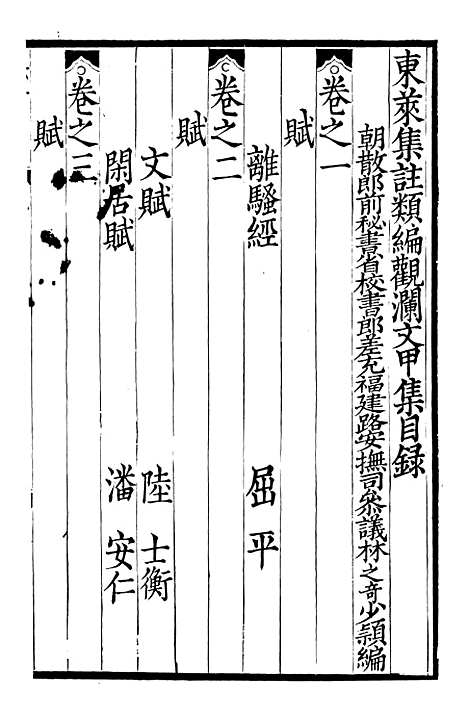 東萊集註類編觀瀾文甲集目録
朝散郎前秘書省校書郎差充福建路安撫司叅議林之竒少頴編
卷之一
賦
離騷經 屈平
卷之二
賦
文賦 陸士衡
閑居賦 潘安仁
卷之三
賦